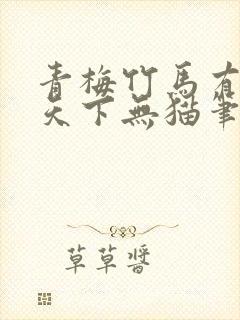 青梅竹馬有
天下無猫筆
草草醬